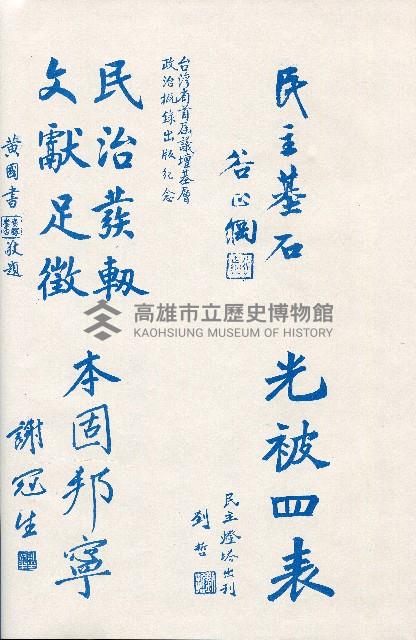 民主基石
谷正綱
台灣省首屆議壇基層
政治概錄出版紀念
民治發軔
文獻足徵
黃國書
敬題
高雄市立歷史博物館
KAOHSIUNG MUSEUM OF HISTORY
光被四表
民主燈塔出刊
劉哲
本固邦寧
謝冠生